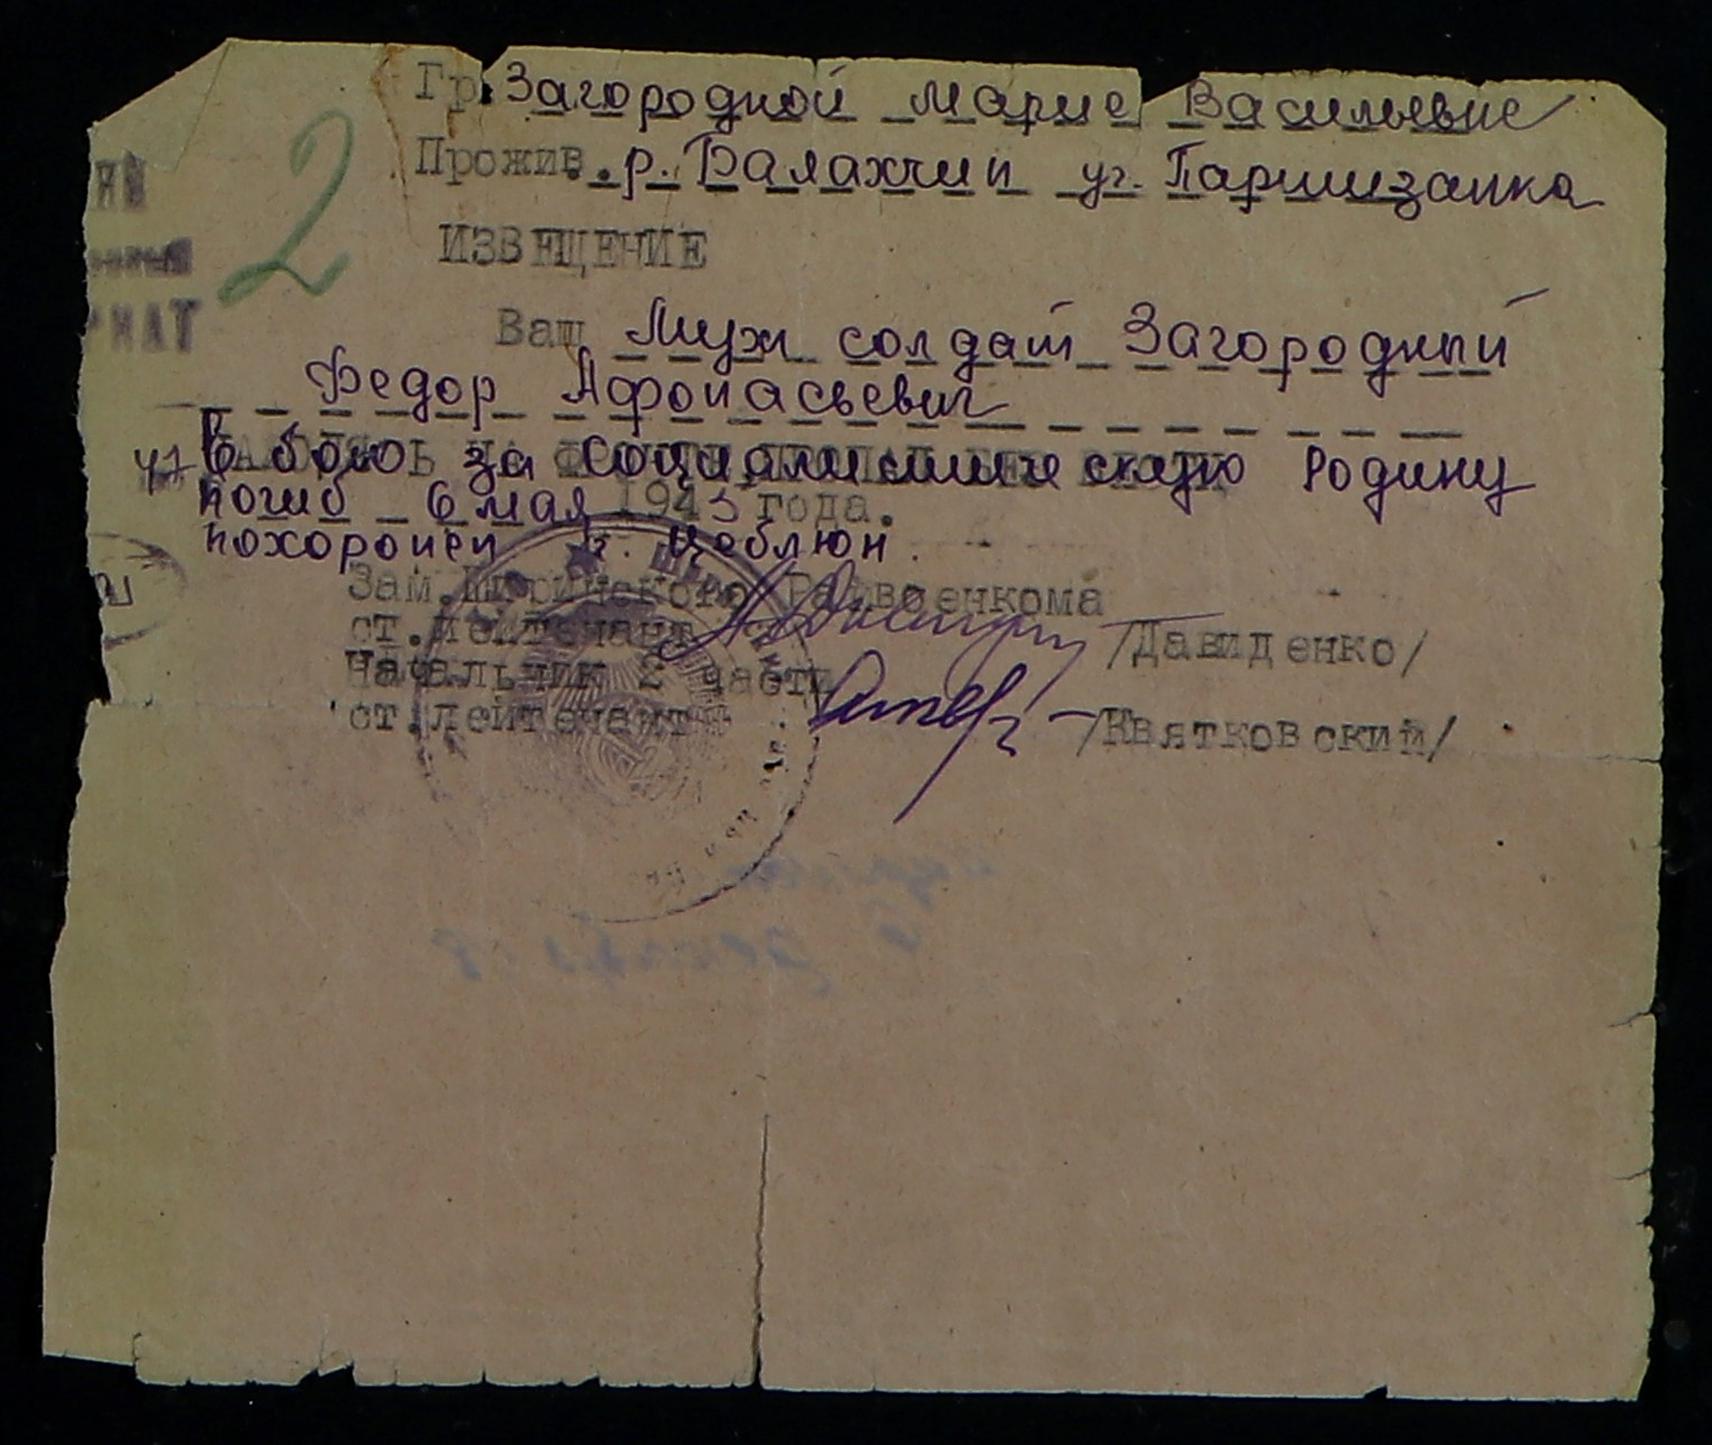 Гр. Загородной Марие Васильевне
Прожив. р. Балахчин уч. Партизанка
2
РИАТ
ИЗВЕЩЕНИЕ
Ваш Муж солдат Загородный
Федор Афонасьевич
в бою за социалистическую Родину
погиб 6 мая 1945 года.
похоронен г. Цоблюн
Зам. Ширинского Райвоенкома
ст. лейтенант /Давиденко/
Начальник 2 части
ст. лейтенант /Квятковский/